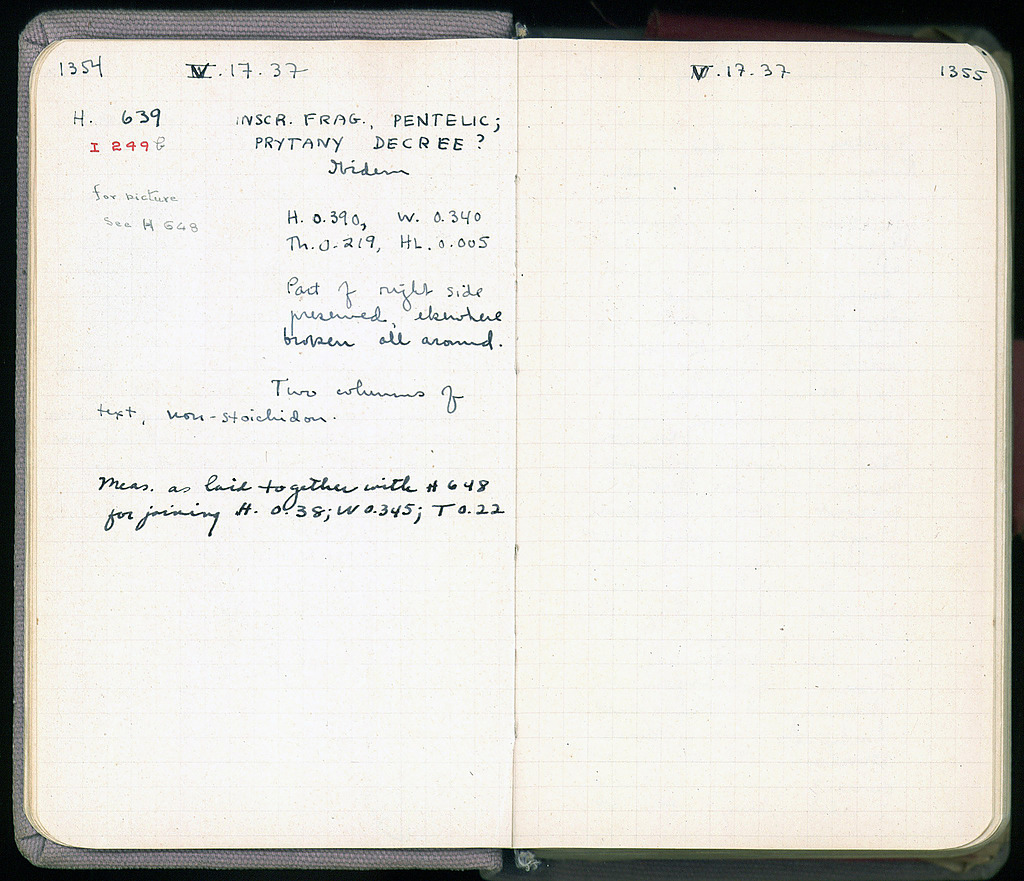 1354 IV.17.37
H. 639 INSCR. FRAG., PENTELIC;
I 249 b PRYTANY DECREE?
Ibidem
for picture
see H 648
H. 0.390, W. 0.340
Th. 0.219, HL. 0.005
Part of right side
preserved, elsewhere
broken all around.
Two columns of
text, non-stoichidon.
Meas. as laid together with H 648
for joining H. 0.38; W 0.345; T 0.22
V.17.37 1355